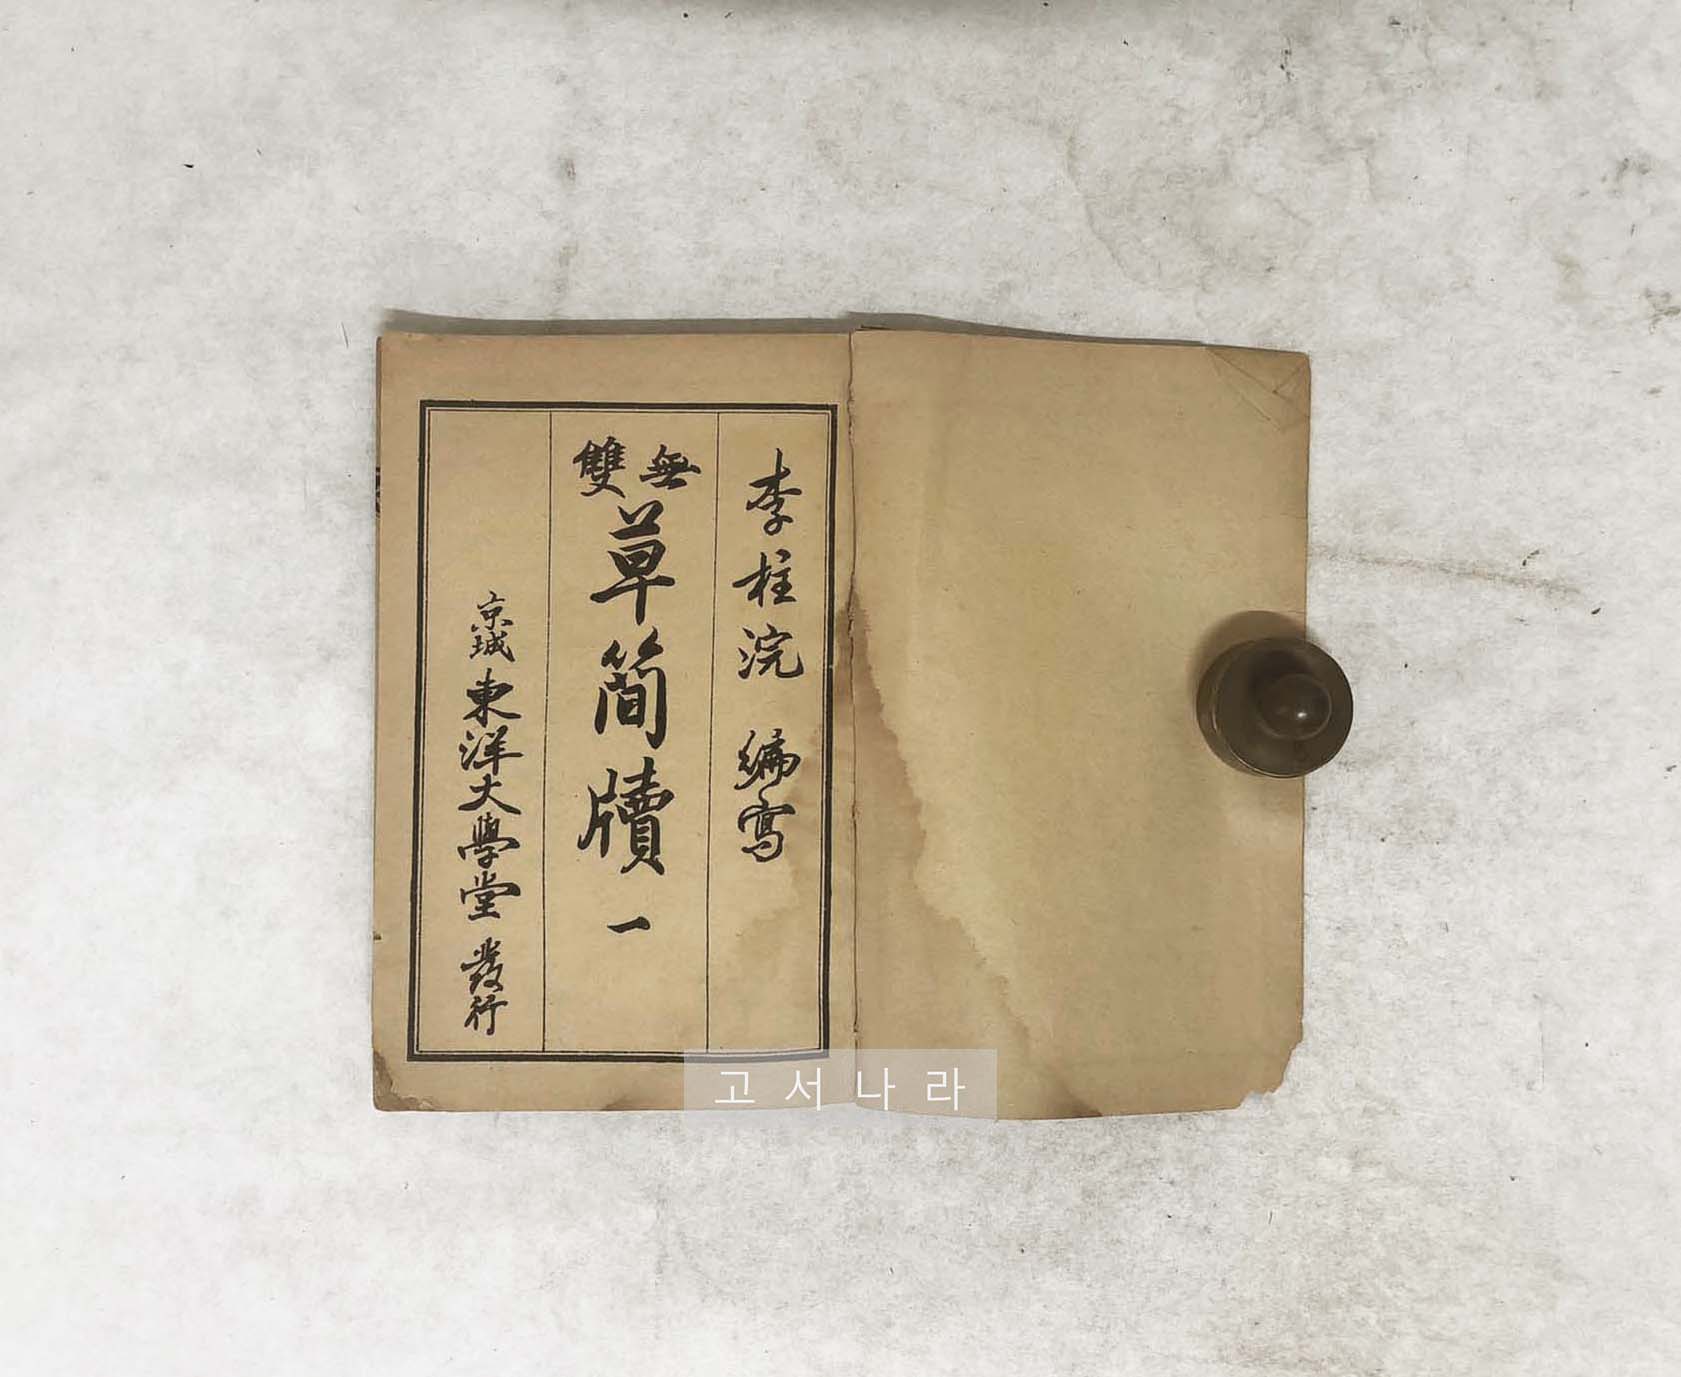 李柱浣 編寫
無雙
草簡牘 一
京城 東洋大學堂 發行
고서나라